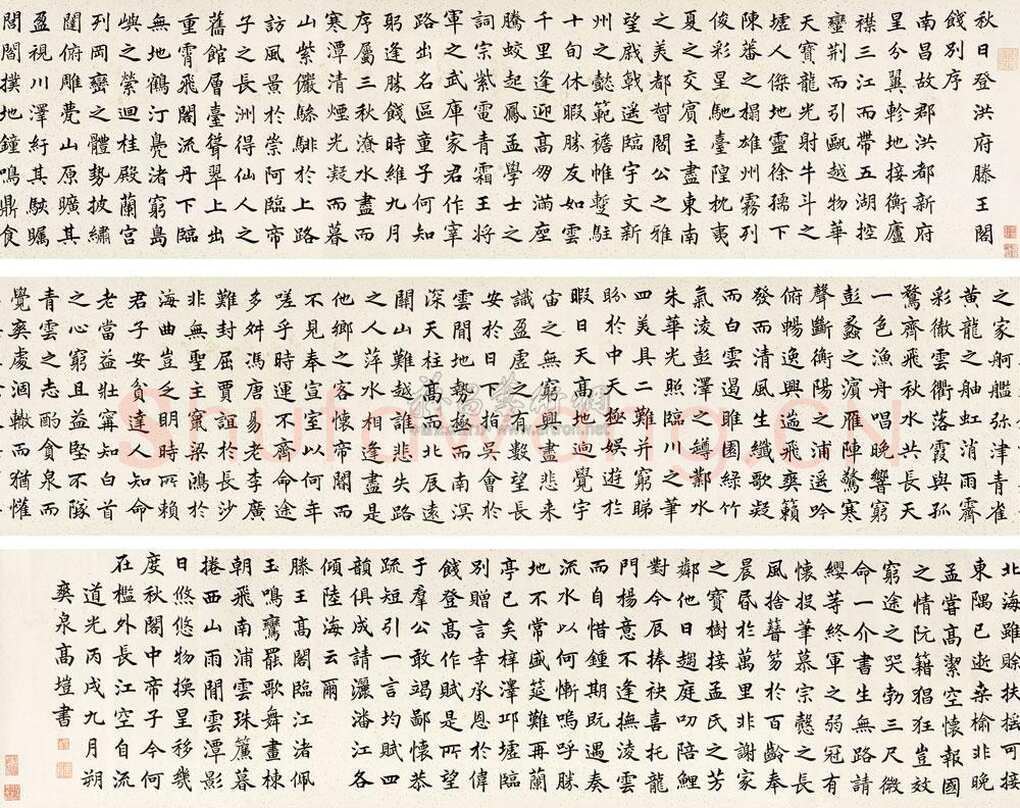 秋日登洪府滕王閣
餞別序
南昌故郡洪都新府
星分翼軫地接衡廬
襟三江而帶五湖控
蠻荆而引甌越物華
天寶龍光射牛斗之
墟人傑地靈徐孺下
陳蕃之榻雄州霧列
俊彩星馳臺隍枕夷
夏之交賓主盡東南
之美都督閻公之雅
望戟遥臨宇文新
州之懿範襜惟蹔駐
十旬休暇勝友如雲
千里逢迎髙朋滿座
騰蛟起鳳孟學士之
詞宗紫電青霜王將
軍之武庫家君作宰
路出名區童子何知
躬逢勝餞時維九月
序屬三秋潦水盡而
寒潭清煙光凝而暮
山紫儼驂騑於上路
訪風景於崇阿臨帝
子之長洲得仙人之
舊館層臺聳翠上出
重霄飛閣流丹下臨
無地鶴汀鳧渚窮島
嶼之縈迴桂殿蘭宫
列岡巒之體勢披繡
闥俯雕甍山原曠其
盈視川澤紆其駭矚
閭閻撲地鐘鳴鼎食
之家舸艦弥津青雀
黄龍之舳虹消雨霽
彩徹雲衢落霞與孤
鶩齊飛秋水共長天
一色漁舟唱晚響窮
彭蠡之濱雁陣驚寒
聲斷衡陽之浦遥吟
俯暢逸興遄飛爽籟
發而清風生纖歌凝
而白雲遏睢園緑竹
氣淩彭澤之罇鄴水
朱華光照臨川之筆
四美具二難并窮睇
眄於中天極娱遊於
暇日天髙地迥覺宇
宙之無窮興盡悲来
識盈虚之有數望長
安於日下指吴會於
雲間地勢極而南溟
深天柱髙而北辰遠
關山難越誰悲失路
之人萍水相逢盡是
他鄉之客懷帝閽而
不見奉宣室以何年
嗟乎時運不齊命途
多舛馮唐易老李廣
難封屈賈誼於長沙
非無聖主竄梁鴻於
海曲豈乏明時所賴
君子安貧達人知命
老當益壯寧知白首
之心窮且益堅不隊
青雲之志酌貪泉而
覺爽處涸轍而猶懽
北海雖賒扶摇可接
東隅已逝桑榆非晚
孟嘗髙潔空懷報國
之情阮籍猖狂豈效
窮途之哭勃三尺微
命一介書生無路請
纓等終軍之弱冠有
懷投筆慕宗慤之長
風捨簪笏於百齡奉
晨昏於萬里非謝家
之寶樹接孟氏之芳
鄰他日趨庭叨陪鯉
對今辰捧袂喜托龍
門楊意不逢撫淩雲
而自惜鍾期既遇奏
流水以何慚嗚呼勝
地不常盛筵難再蘭
亭已矣梓澤邱墟臨
别贈言幸承恩於偉
餞登髙作賦是所望
于羣公敢竭鄙懷恭
疏短引一言均賦四
韻俱成請灑潘江各
傾陸海云爾
滕王髙閣臨江渚佩
玉鳴鸞罷歌舞畫棟
朝飛南浦雲珠簾暮
捲西山雨閒雲潭影
日悠悠物換星移幾
度秋閣中帝子今何
在檻外長江空自流
道光丙戌九月朔
爽泉髙塏書